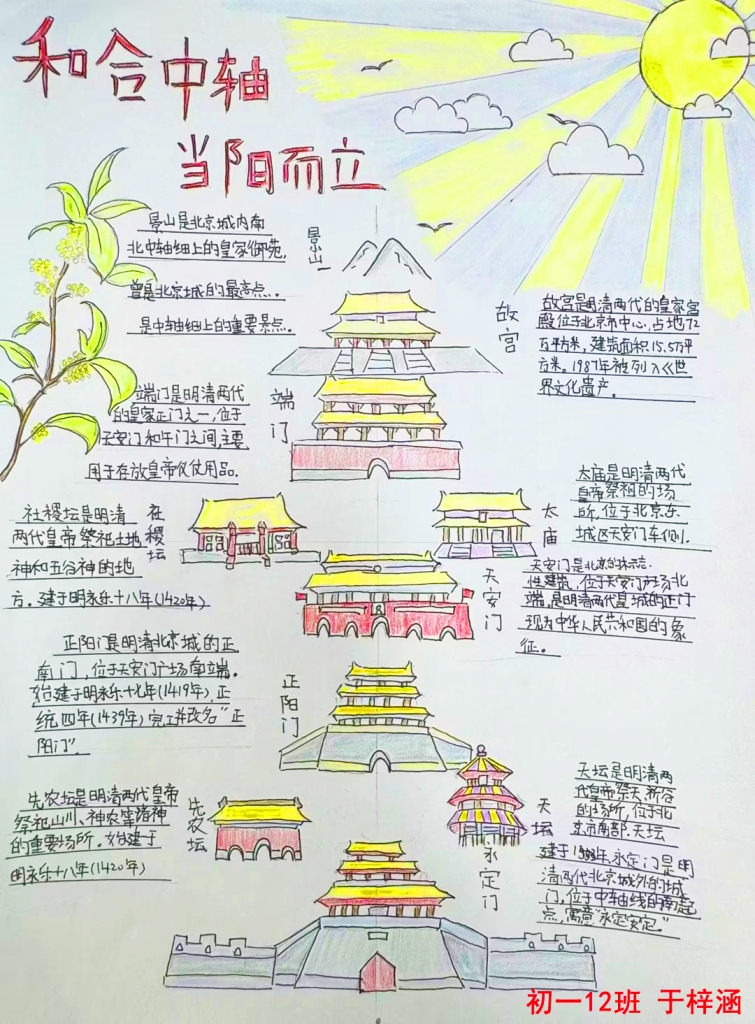 和合中轴
当阳而立
景山是北京城内南
北中轴细上的皇家御苑,
曾是北京城的最高点.
是中轴细上的重要景点.
景山
故宫
故宫是明清两代的皇家宫
殿位于北京市中心.占地72
万平方米，建筑面积15.5万平
方米。1987年被列入《世
界文化遗产。
端门是明清两代
的皇家正门之一,位于
天安门和午门之间,主要
用于存放皇帝仪仗用品.
端门
社稷坛是明清
两代皇帝祭祀土地
神和五谷神的地
方。建于明永乐十八年(1420年)
社稷坛
太庙
太庙是明清两代
皇帝祭祖的场
所,位于北京东
城区天安门东侧.
天安门
天安门是北京的标志
性建筑，位于天安门广场北
端,是明清两代皇城的正门
现为中华人民共和国的象
征。
正阳门是明清北京城的正
南门，位于天安门广场南端。
始建于明永乐十七年(1419年),正
统四年(1439年)完工并改名“正
阳门”.
正阳门
先农坛是明清两代皇帝
祭祀山川、神农等诸神
的重要场所。始建于
明永乐十八年(1420年)
先农坛
天坛
天坛是明清两
代皇帝祭天、祈谷
的场所，位于北
京南部.天坛
永定门
永定门是明
清两代北京城外的城
门,位于中轴线的南起
点,寓意“永定安定”
初一12班 于梓涵